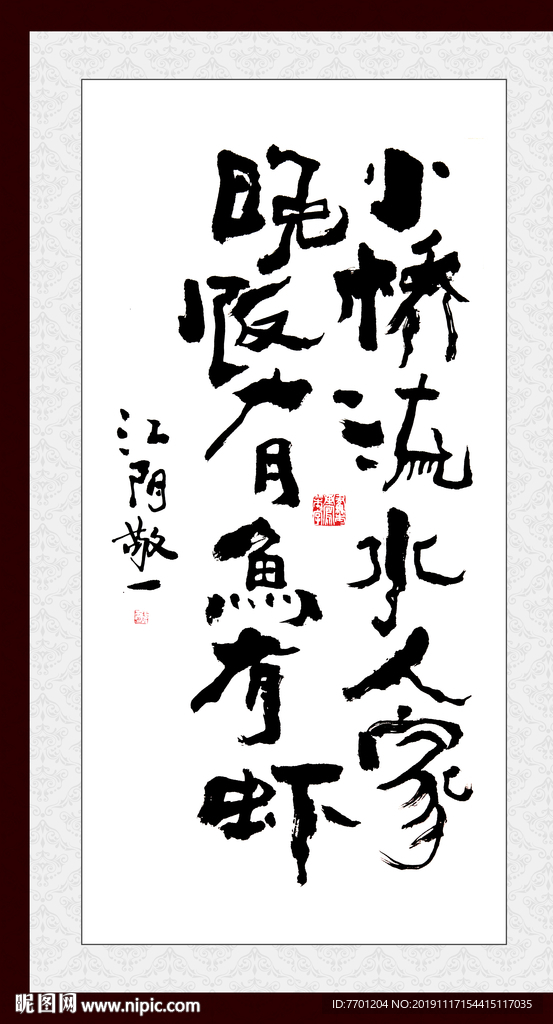 小桥流水人家
晚饭有魚有虾
江阴敬一
昵图网 www.nipic.com
ID:7701204 NO:20191117154415117035